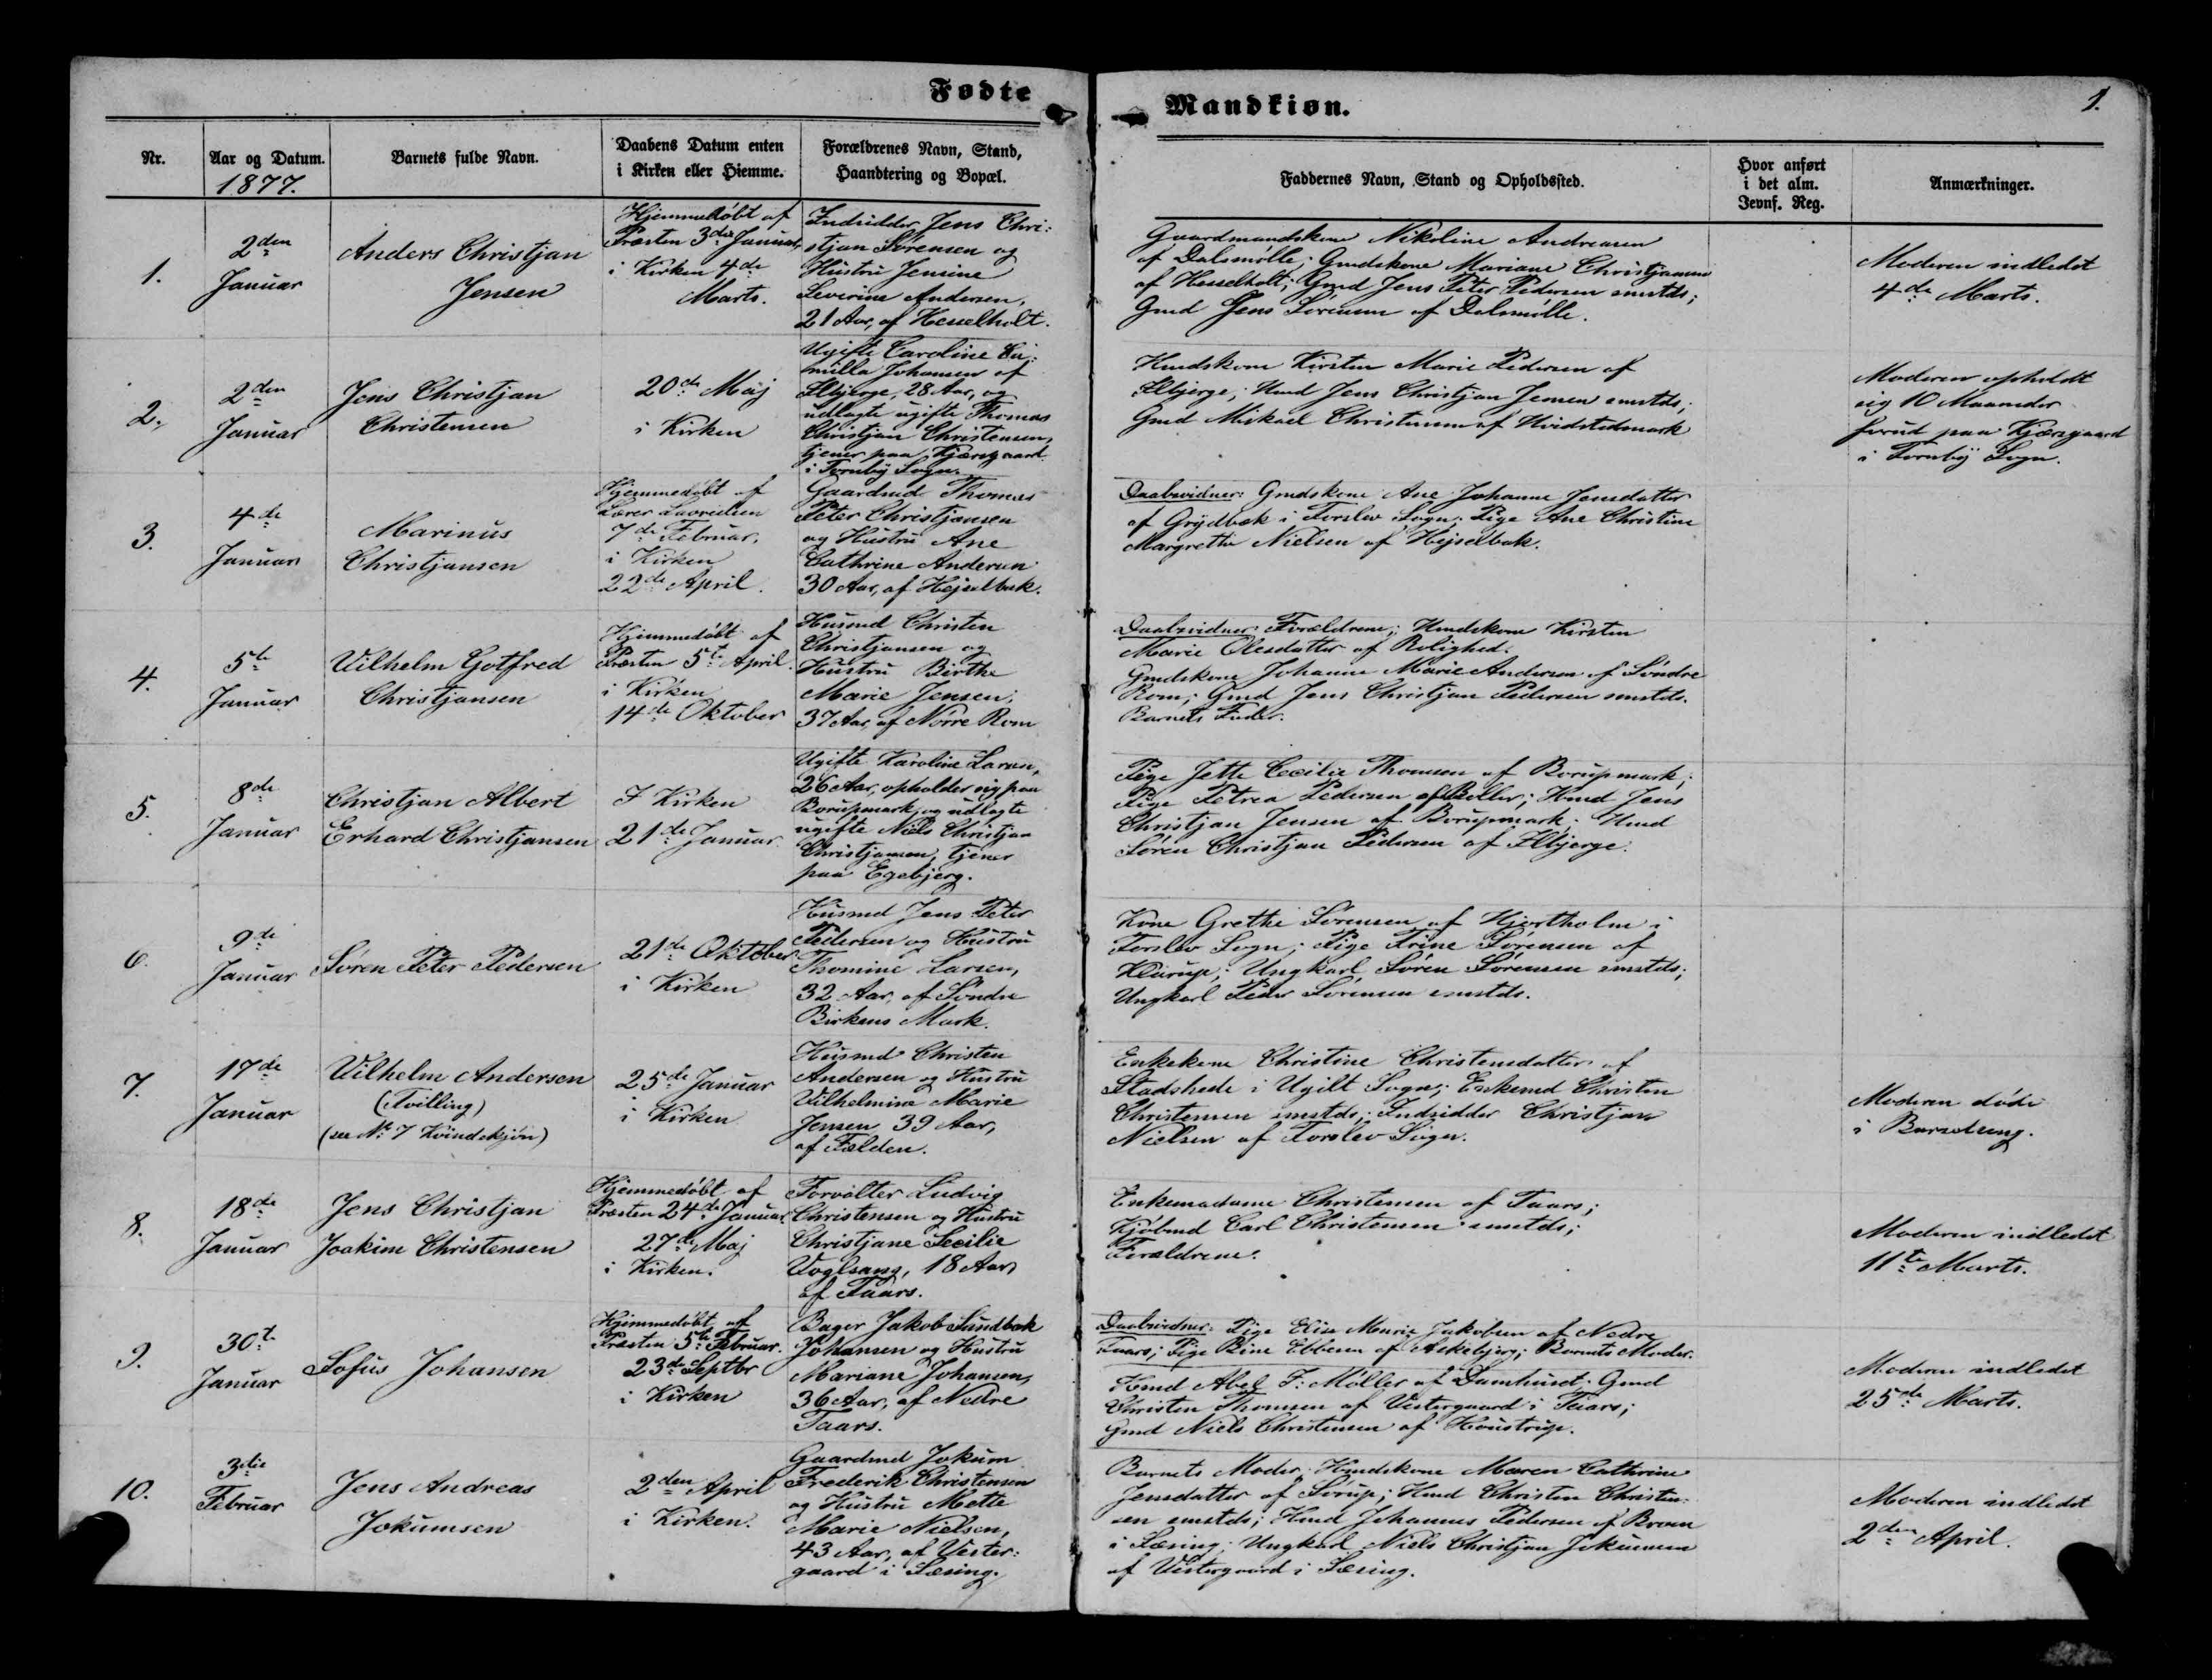 Fødte
Mandkiøn.
1.
Nr.
Aar og Datum.
1877.
Barnets fulde Navn.
Daabens Datum enten
i Kirken eller Hiemme.
Forældrenes Navn, Stand,
Haandtering og Bopæl.
Faddernes Navn, Stand og Opholdssted.
Hvor anført
i det alm.
Jevnf. Reg.
Anmærkninger.
1.
2den
Januar
Anders Christjan
Jensen
Hjemmedøbt af
Præsten 3die Januar,
i Kirken 4de
Marts.
Indsidder Jens Chri-
stjan Sørensen og
Hustru Jensine
Severine Andersen,
21 Aar, af Hesselholt.
Gaardmandskone Nikoline Andreasen
af Dalsmølle; Gmdskone Mariane Christjansen
af Hesselholt; Gmd Jens Peter Pedersen smstds;
Gmd Jens Sørensen af Dalsmølle.
Moderen indledet
4de Marts.
2.
2den
Januar
Jens Christjan
Christensen
20de Maj
i Kirken
Ugifte Caroline
Johansen af
Ilbjerge, 28 Aar, og
udlagte ugifte Thomas
Christjan Christensen,
tjener paa Kjærsgaard
i Tornby Sogn.
Hmdskone Kirsten Marie Pedersen af
Ilbjerge; Hmd Jens Christjan Jensen smstds;
Gmd Mikael Christensen af Hvidstedmark
Moderen opholdt
sig 10 Maaneder
forud paa Kjærsgaard
i Tornby Sogn.
3.
4de
Januar
Marinus
Christjansen
Hjemmedøbt af
Lærer Lauridsen
7de Februar,
i Kirken
22de April.
Gaardmd Thomas
Peter Christjansen
og Hustru Ane
Cathrine Andersen
30 Aar, af Hejselbak.
Daabsvidner: Gmdskone Ane Johanne Jensdatter
af Grydbæk i Torslev Sogn; Pige Ane Christine
Margrethe Nielsen af Hejselbak.
4.
5te
Januar
Vilhelm Gotfred
Christjansen
Hjemmedøbt af
Præsten 5te April.
i Kirken
14de Oktober
Husmd Christen
Christjansen og
Hustru Birthe
Marie Jensen;
37 Aar, af Nørre Rom
Daabsvidner Forældrene; Hmdskone Kirsten
Marie Olesdatter af Rolighed.
Gmdskone Johanne Marie Andersen af Søndre
Rom; Gmd Jens Christjan Pedersen smstds.
Barnets Fader.
5.
8de
Januar
Christjan Albert
Erhard Christjansen
I Kirken
21de Januar
Ugifte Karoline Larsen,
26 Aar, opholder sig paa
Borupmark, og udlagte
ugifte Niels Christjan
Christjansen, tjener
paa Egebjerg.
Pige Jette Cecilie Thomsen af Borupmark;
Pige Petrea Pedersen af Beller; Hmd Jens
Christjan Jensen af Borupmark; Hmd
Søren Christjan Pedersen af Ilbjerge.
6.
9de
Januar
Søren Peter Pedersen
21de Oktober
i Kirken
Husmd Jens Peter
Pedersen og Hustru
Thomine Larsen,
32 Aar, af Søndre
Birkens Mark.
Kone Grethe Sørensen af Hjortholm i
Torslev Sogn; Pige Trine Sørensen af
Ungkarl Søren Sørensen smstds;
Ungkarl Peder Sørensen smstds.
7.
17de
Januar
Vilhelm Andersen
(Tvilling)
(see No 7 Kvindekjøn)
25de Januar
i Kirken
Husmd Christen
Andersen og Hustru
Vilhelmine Marie
Jensen, 39 Aar,
af Fælden.
Enkekone Christine Christensdatter af
Stadshede i Ugilt Sogn; Enkemd Christen
Christensen smstds; Indsidder Christjan
Nielsen af Torslev Sogn.
Moderen døde
i Barselseng.
8.
18de
Januar
Jens Christjan
Joakim Christensen
Hjemmedøbt af
Præsten 24de Januar.
27de Maj
i Kirken.
Forvalter Ludvig
Christensen og Hustru
Christjane Secilie
Voglsang, 18 Aar
af Taars.
Enkemadame Christensen af Taars;
Kjøbmd Carl Christensen smstds;
Forældrene.
Moderen indledet
11te Marts.
9.
30te
Januar
Sofus Johansen
Hjemmedøbt af
Præsten 5te Februar.
23de Septbr
i Kirken
Bager Jakob Sundbak
Johansen og Hustru
Mariane Johansen,
36 Aar, af Nedre
Taars.
Daabsvidner: Pige Elise Marie Jakobsen af Nedre
Taars; Pige Ebbesen af Askebjerg; Barnets Moder.
Hmd Abel F. Møller af Damhuset; Gmd
Christen Thomsen af Vestergaard i Taars;
Gmd Niels Christensen af Houstrup.
Moderen indledet
25de Marts.
10.
3die
Februar
Jens Andreas
Jokumsen
2den April
i Kirken.
Gaardmd Jokum
Frederik Christensen
og Hustru Mette
Marie Nielsen,
43 Aar, af Vester-
gaard i Sæsing.
Barnets Moder; Hmdskone Maren Cathrine
Jensdatter af Sørup; Hmd Christen Christen-
sen smstds; Hmd Johannes Pedersen af Broen
i Sæsing; Ungkarl Niels Christjan Jokumsen
af Vestergaard i Sæsing.
Moderen indledet
2den April.